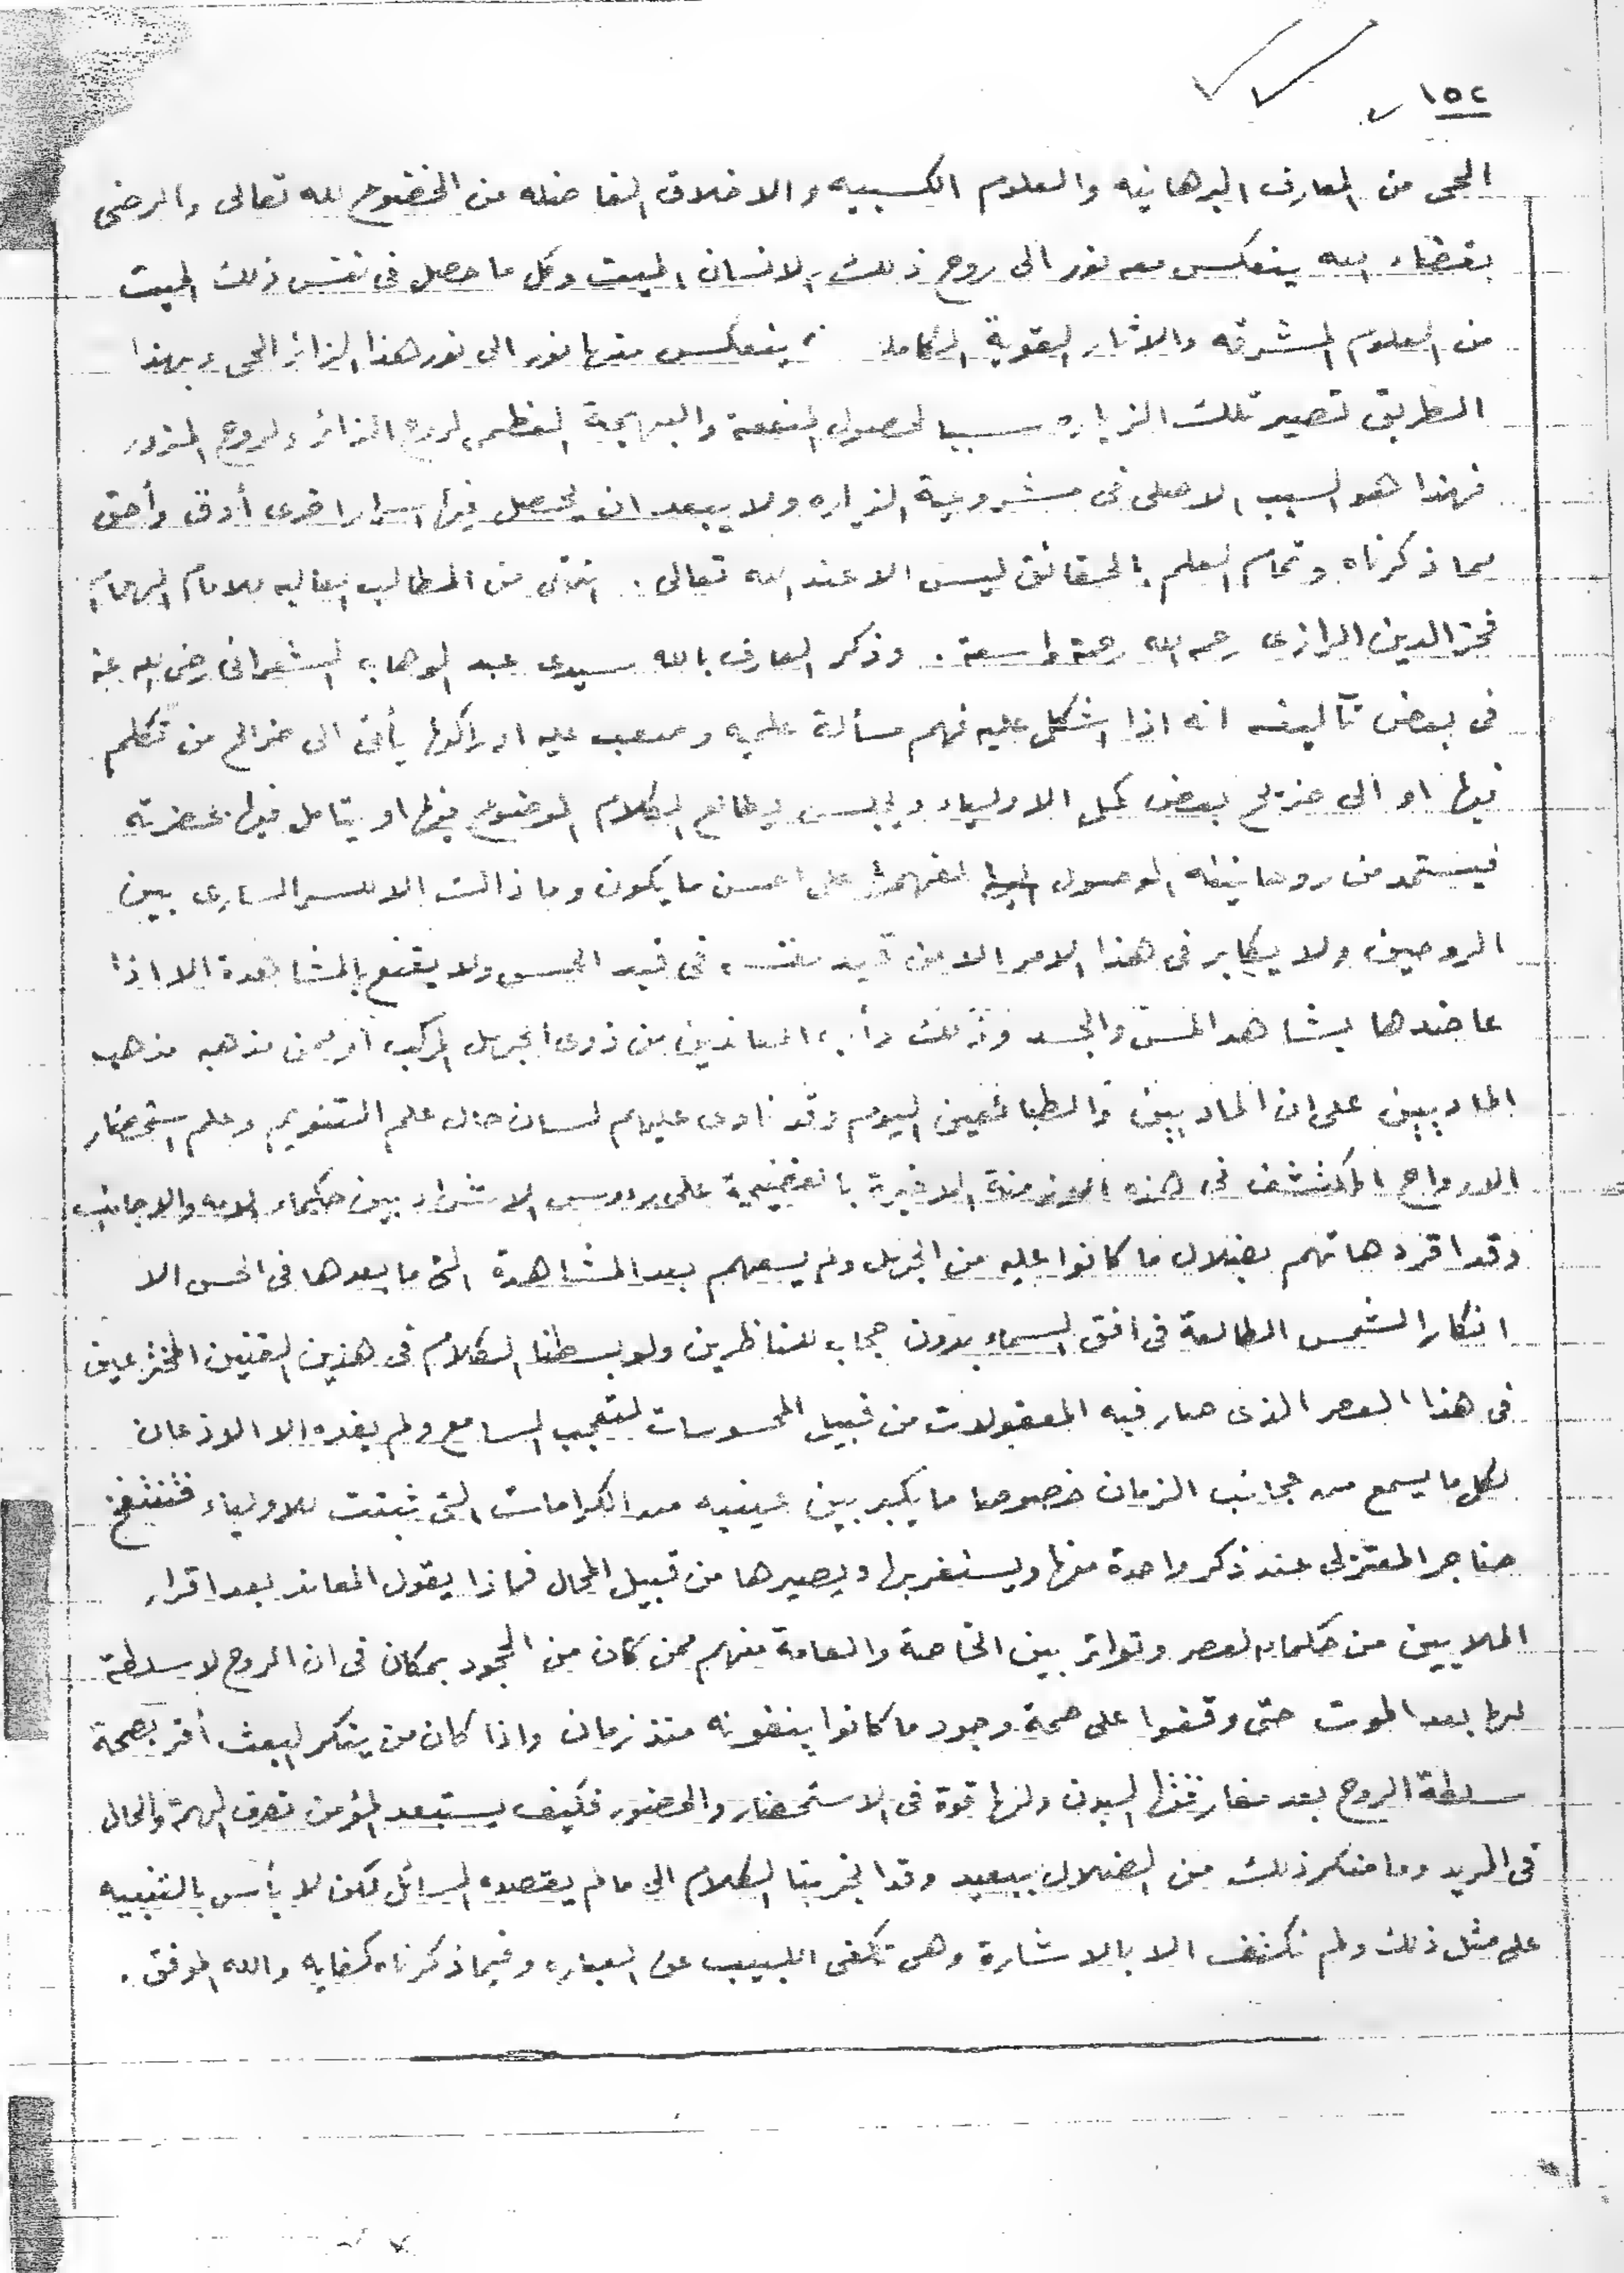 ١٥٢
الحى من المعارف البرهانيه والعلوم الكسبيه والاخلاق الفاضله من الخضوع لله تعالى والرضى
بقضاء الله ينعكس منه نور الى روح ذلك الانسان الميت وكل ما حصل فى نفس ذلك الميت
من العلوم المشرقه والاثار القوية الكامله ينعكس منها نور الى نور هذا الزائر الحى وبهذا
الطريق تصير تلك الزياره سببا لحصول المنفعة والبهجة العظمى لروح الزائر ولروح المزور
فهذا هو السبب الاصلى فى مشروعية الزياره ولا يبعد ان يحصل فيها اسرار اخرى أدق وأحق
مما ذكرناه وتمام العلم بالحقائق ليس الا عند الله تعالى . انتهى من المطالب العاليه للامام الهمام
فخر الدين الرازى رحمه الله رحمة واسعة . وذكر العارف بالله سيدى عبد الوهاب الشعرانى رضى الله عنه
فى بعض تآليفه انه اذا اشكل عليه فهم مسألة علميه وصعب عليه ادراكها يأتى الى ضرائح من تكلم
فيها او الى ضريح بعض كمل الاولياء ويجلس يطالع الكلام الموضوع فيها او يتامل فيها بحضرته
فيستمد من روحانيته الوصول لفهمها على احسن ما يكون وما ذالك الا للسر السارى بين
الروحين ولا يكابر فى هذا الامر الا من قيد نفسه فى قيد الحس ولا يقنع بالمشاهدة الا اذا
عاضدها بشاهد المس والجسد وذلك دأب المعاندين من ذوى الجهل المركب أو ممن مذهبه مذهب
الماديين على ان الماديين والطبائعيين اليوم وقد نادى عليهم لسان حال علم التنويم وعلم استحضار
الارواح المكتشف فى هذه الازمنة الاخيرة بالفضيحة على رءوس الاشهاد بين حكماء الامه والاجانب
وقد اقر دهاتهم بضلال ما كانوا عليه من الجهل ولم يسعهم بعد المشاهدة التى ما بعدها فى الحس الا
انكار الشمس الطالعة فى افق السماء بدون حجاب للناظرين ولو بسطنا الكلام فى هذين الفنين المخترعين
فى هذا العصر الذى صار فيه المعقولات من قبيل المحسوسات لتعجب السامع ولم يفده الا الاذعان
لكل ما يسمع من عجائب الزمان خصوصا ما يكبر بين عينيه من الكرامات التى ثبتت للاولياء فتنتفخ
حناجر المعتزلى عند ذكر واحدة منها ويستغربها ويصيرها من قبيل المحال فماذا يقول المعاند بعد اقرار
الملايين من حكماء العصر وتواتر بين الخاصة والعامة منهم ممن كان من الجحود بمكان فى ان الروح لا سلطة
لها بعد الموت حتى وقفوا على صحة وجود ما كانوا ينفونه منذ زمان واذا كان من ينكر البعث أقر بصحة
سلطة الروح بعد مفارقتها البدن ولها قوة فى الاستحضار والحضور فكيف يستبعد المؤمن تصرف الهمة والحال
فى المريد وما منكر ذلك من الضلال ببعيد وقد انجر بنا الكلام الى ما لم يقصده السائل لكن لا بأس بالتنبيه
على مثل ذلك ولم نكتف الا بالاشارة وهى تكفى اللبيب عن العباره وفيما ذكرناه كفايه والله الموفق .